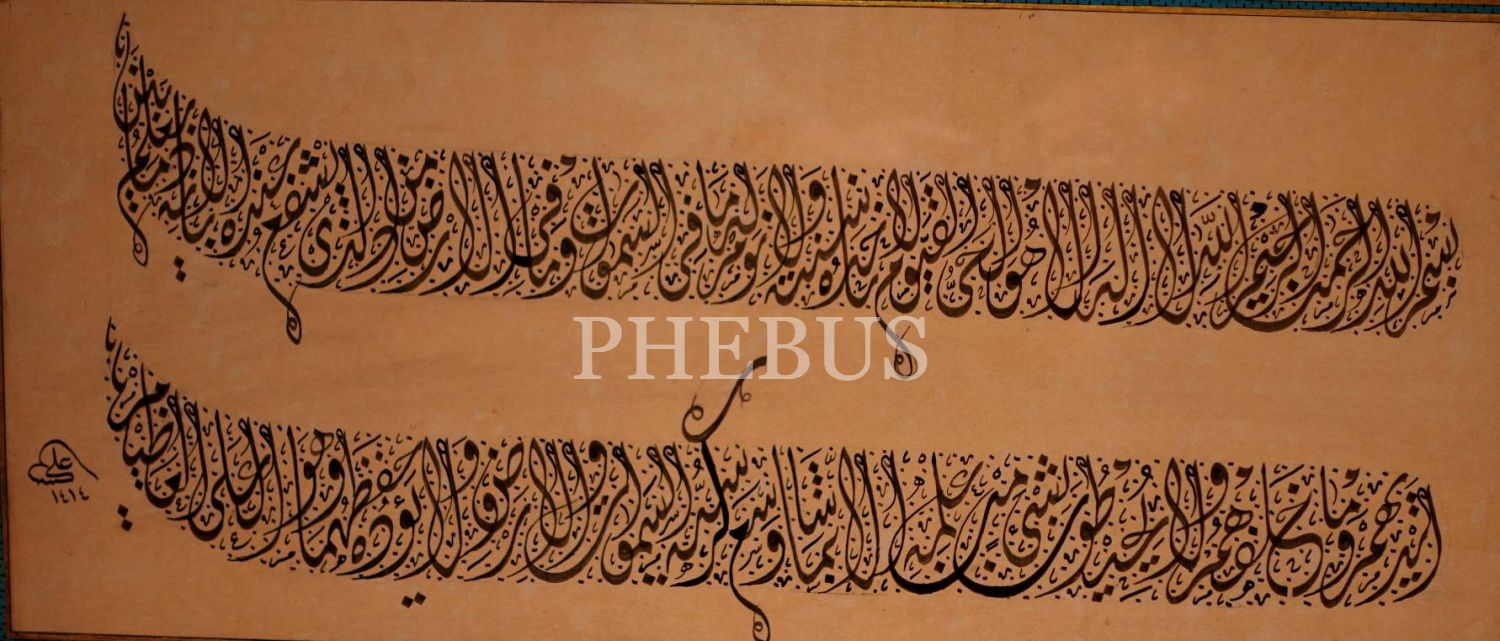 بسم الله الرحمن الرحيم الله لا اله الا هو الحي القيوم لا تأخذه سنة ولا نوم له ما في السموات وما في الارض من ذا الذي يشفع عنده الا باذنه يعلم ما بين
PHEBUS
ايديهم وما خلفهم ولا يحيطون بشيء من علمه الا بما شاء وسع كرسيه السموات والارض ولا يؤده حفظهما وهو العلي العظيم
كتبه علي
١٤١٤